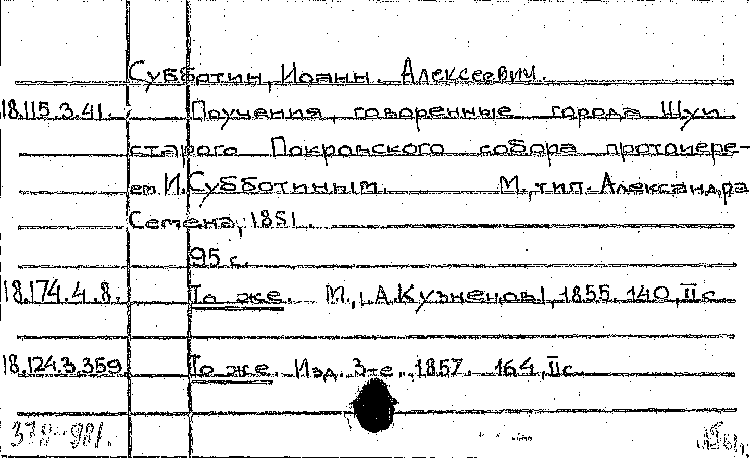 Субботин, Иоанн. Алексеевич.
18.115.3.41. Поучения, говоренные города Шуи
старого Покровского собора протоиере-
ем И. Субботиным. М., тип. Александра
Семена, 1851.
95 с.
18.174.4.8. То же. М., 1855. 140, II с.
18.124.3.359 То же. Изд. 3-е., 1857. 164, II с.